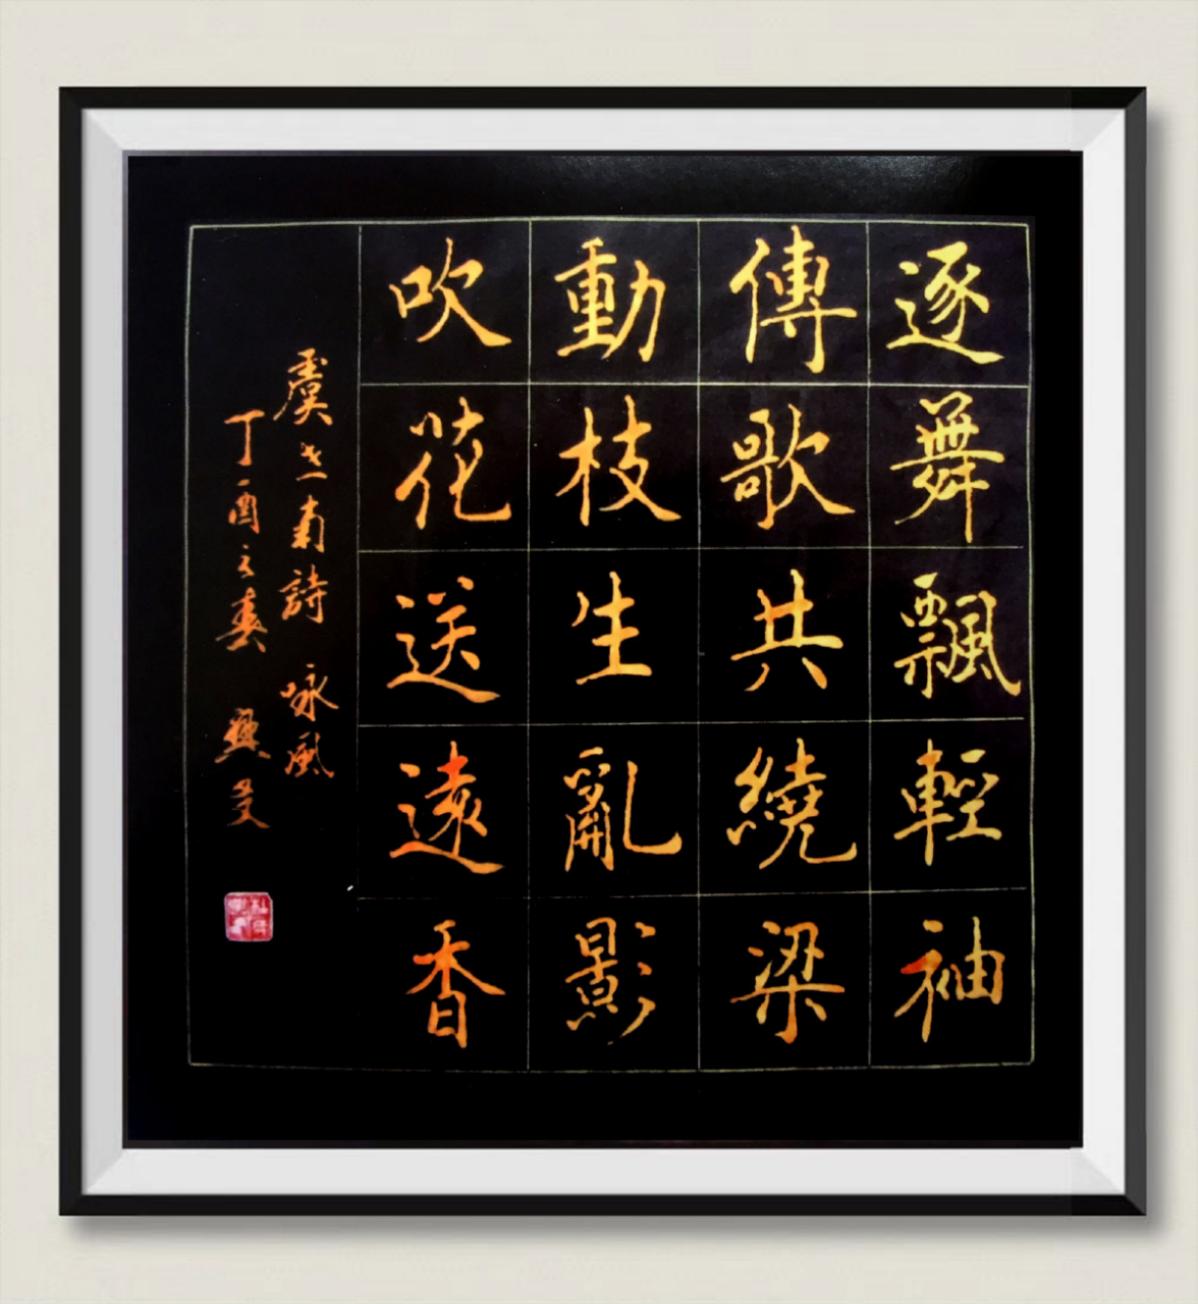 逐舞飄輕袖
傳歌共繞梁
動枝生亂影
吹花送遠香
虞世南詩 咏風
丁酉之春